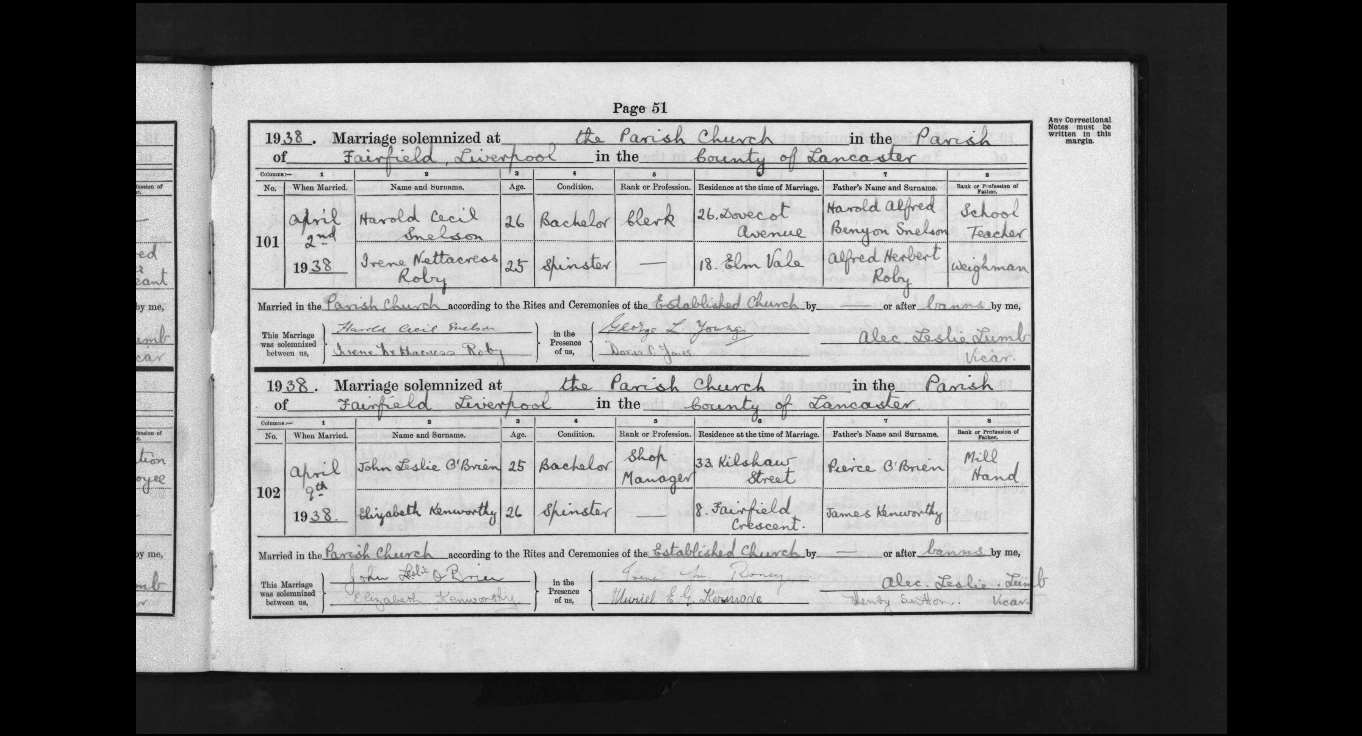 Page 51
Any Correctional
Notes must be
written in this
margin.
1938. Marriage solemnized at the Parish Church in the Parish
of Fairfield, Liverpool in the County of Lancaster
Columns:— 1 2 3 4 5 6 7 8
No. When Married. Name and Surname. Age. Condition. Rank or Profession. Residence at the time of Marriage. Father's Name and Surname. Rank or Profession of Father.
101 April 2nd 1938
Harold Cecil Snelson 26 Bachelor Clerk 26. Dovecot Avenue Harold Alfred Benyon Snelson School Teacher
Irene Nettacress Roby 25 Spinster — 18. Elm Vale Alfred Herbert Roby Weighman
Married in the Parish Church according to the Rites and Ceremonies of the Established Church by — or after banns by me,
This Marriage was solemnized between us,
Harold Cecil Snelson
Irene Nettacress Roby
in the Presence of us,
George L Young
Alec Leslie Lumb
Vicar.
1938. Marriage solemnized at the Parish Church in the Parish
of Fairfield Liverpool in the County of Lancaster.
Columns:— 1 2 3 4 5 6 7 8
No. When Married. Name and Surname. Age. Condition. Rank or Profession. Residence at the time of Marriage. Father's Name and Surname. Rank or Profession of Father.
102 April 9th 1938.
John Leslie O'Brien 25 Bachelor Shop Manager 33 Kilshaw Street Pierce O'Brien Mill Hand
Elizabeth Kenworthy 26 Spinster — 8. Fairfield Crescent. James Kenworthy
Married in the Parish Church according to the Rites and Ceremonies of the Established Church by — or after banns by me,
This Marriage was solemnized between us,
John Leslie O'Brien
Elizabeth Kenworthy
in the Presence of us,
Muriel E G Kermode
Henry Sutton.
Alec. Leslie. Lumb
Vicar.